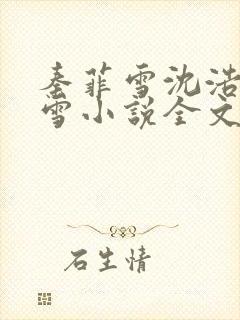 秦菲雪沈浩
雪小说全文
石生情